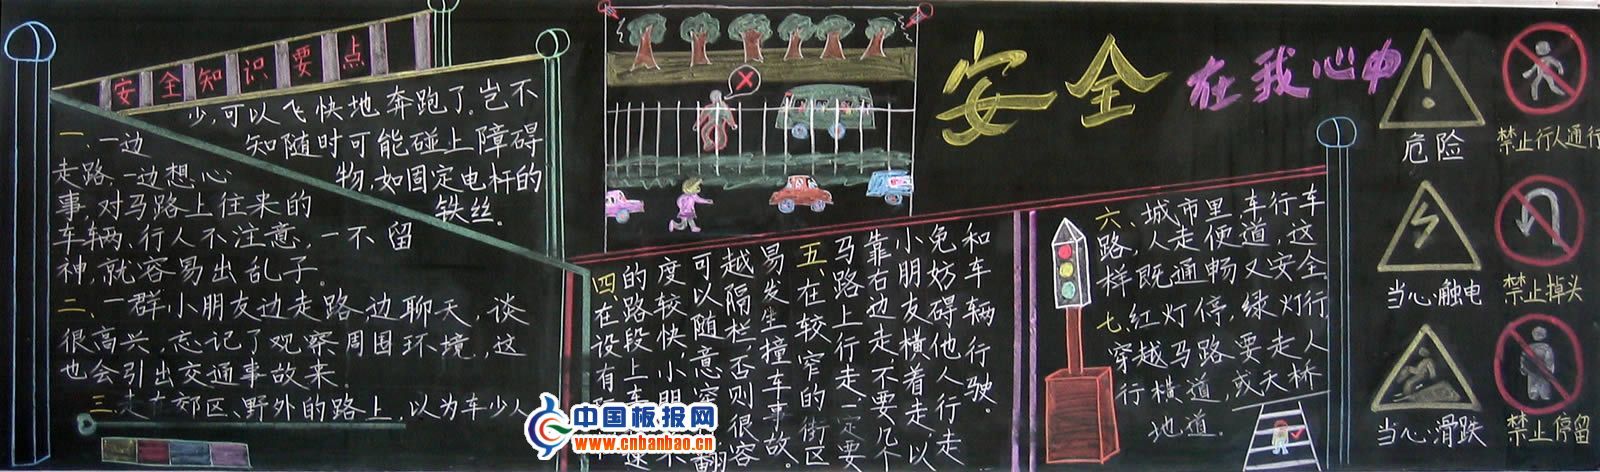 安全知识要点
一、一边
走路,一边想心
事,对马路上往来的
车辆、行人不注意,一不留
神,就容易出乱子。
二、一群小朋友边走路边聊天,谈
很高兴,忘记了观察周围环境,这
也会引出交通事故来。
三、走在郊区、野外的路上,以为车少人
少,可以飞快地奔跑了。岂不
知随时可能碰上障碍
物,如固定电杆的
铁丝。
安全在我心中
四、在设有
的路段上,车速
度较快,小朋不
可以随意翻
越隔栏,否则很容
易发生撞车事故。
五、在较窄的街区
马路上行走,一定要
靠右边走,不要几个
小朋友横着走,以
免妨碍他人行走
和车辆行驶。
六、城市里,车行车
路,人走便道,这
样既通畅又安全。
七、红灯停,绿灯行,
穿越马路要走人
行横道,或天桥
地道。
危险
禁止行人通行
当心触电
禁止掉头
当心滑跌
禁止停留
中国板报网
www.cnbanbao.cn